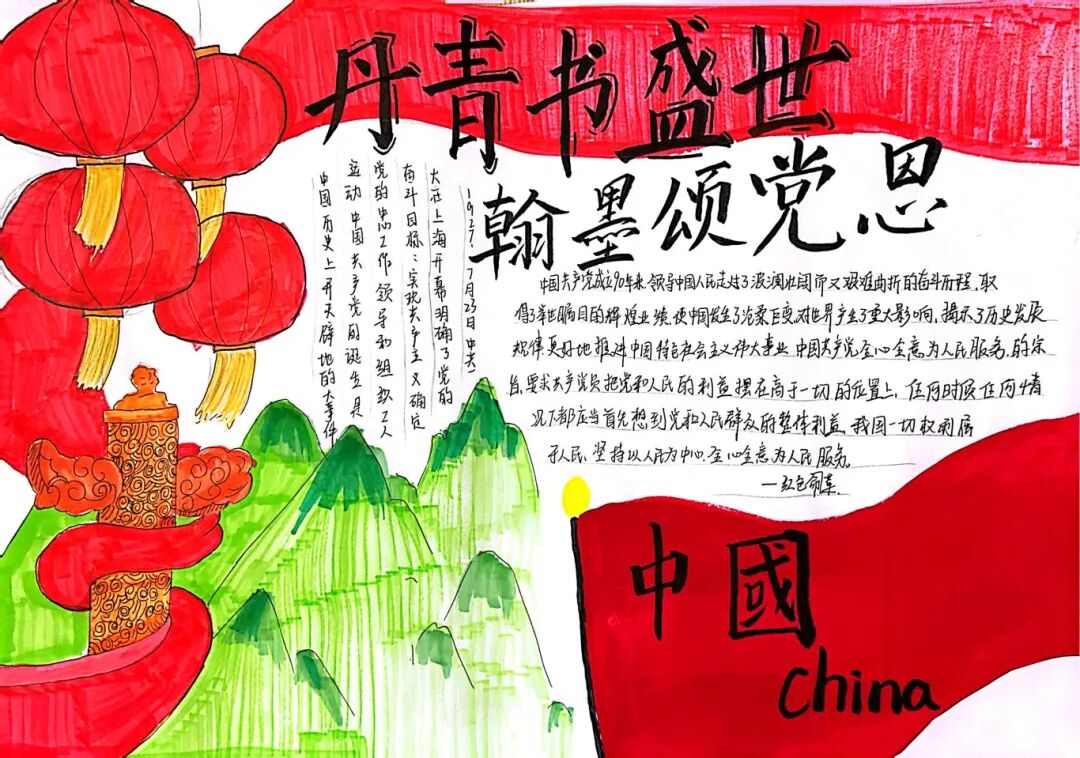 丹青书盛世
翰墨颂党恩
1927.7月23日中共一
大在上海开幕明确了党的
奋斗目标:实现共产主义确定
党的中心工作领导和组织工人
运动中国共产党的诞生是
中国历史上开天辟地的大事件
中国共产党成立90年来,领导中国人民走过了波澜壮阔而又艰难曲折的奋斗历程,取
得了举世瞩目的辉煌业绩,使中国发生了沧桑巨变,对世界产生了重大影响,揭示了历史发展
规律更好地推进中国特色社会主义伟大事业 中国共产党全心全意为人民服务的宗
旨,要求共产党员把党和人民的利益摆在高于一切的位置上,任何时候任何情
况下都应当首先想到党和人民群众的整体利益 我国一切权利属
于人民,坚持以人民为中心,全心全意为人民服务。
—红色
中國
China